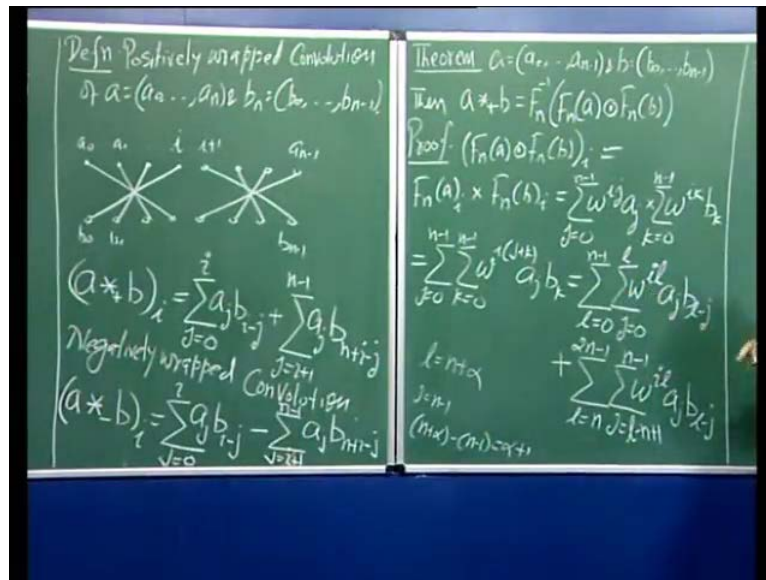 Defn Positively wrapped Convolution
of a=(a₀ ..., aₙ) & bₙ=(b₀, ..., bₙ₋₁)
a₀ a₁ i i+1 aₙ₋₁
b₀ b₁ bₙ₋₁
(a *₊ b)ᵢ = ∑_{j=0}^{i} aⱼ b_{i-j} + ∑_{j=i+1}^{n-1} aⱼ b_{n+i-j}
Negatively wrapped Convolution
(a *₋ b)ᵢ = ∑_{j=0}^{i} aⱼ b_{i-j} − ∑_{j=i+1}^{n-1} aⱼ b_{n+i-j}
Theorem a=(a₀, ..., aₙ₋₁) & b=(b₀, ..., bₙ₋₁)
Then a *₊ b = Fₙ⁻¹(Fₙ(a) ⊙ Fₙ(b))
Proof (Fₙ(a) ⊙ Fₙ(b))ᵢ =
Fₙ(a)ᵢ × Fₙ(b)ᵢ = ∑_{j=0}^{n-1} ω^{ij} aⱼ × ∑_{k=0}^{n-1} ω^{ik} bₖ
= ∑_{j=0}^{n-1} ∑_{k=0}^{n-1} ω^{i(j+k)} aⱼ bₖ = ∑_{l=0}^{n-1} ∑_{j=0}^{l} ω^{il} aⱼ b_{l-j}
+ ∑_{l=n}^{2n-1} ∑_{j=l-n+1}^{n-1} ω^{il} aⱼ b_{l-j}
l=n+α
j=n-1
(n+α)-(n-1)=α+1